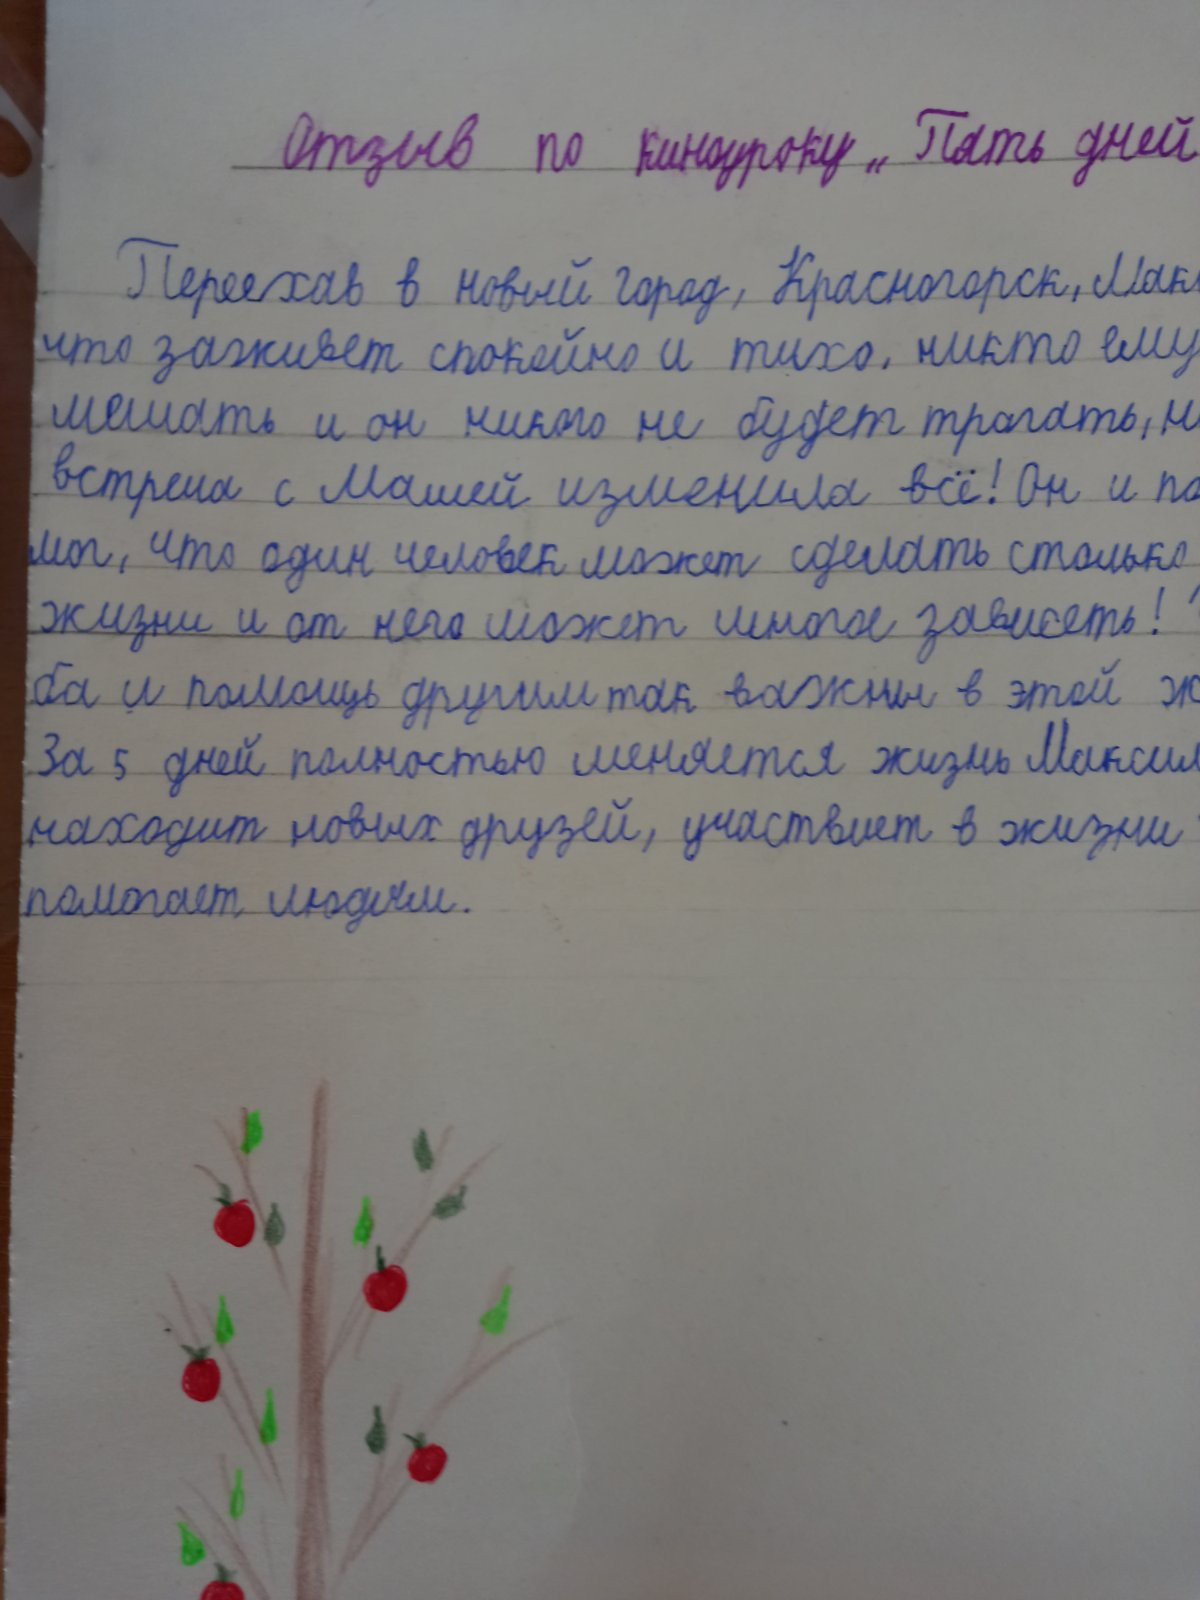 Отзыв по киноуроку „Пять дней
Переехав в новый город, Красногорск,
что заживет спокойно и тихо, никто ему
мешать и он никого не будет трогать,
встреча с Машей изменила всё! Он и
мог, что один человек может сделать столько
жизни и от него может многое зависеть!
ба и помощь другим так важны в этой
За 5 дней полностью меняется жизнь Максим
находит новых друзей, участвует в жизни
помогает людям.